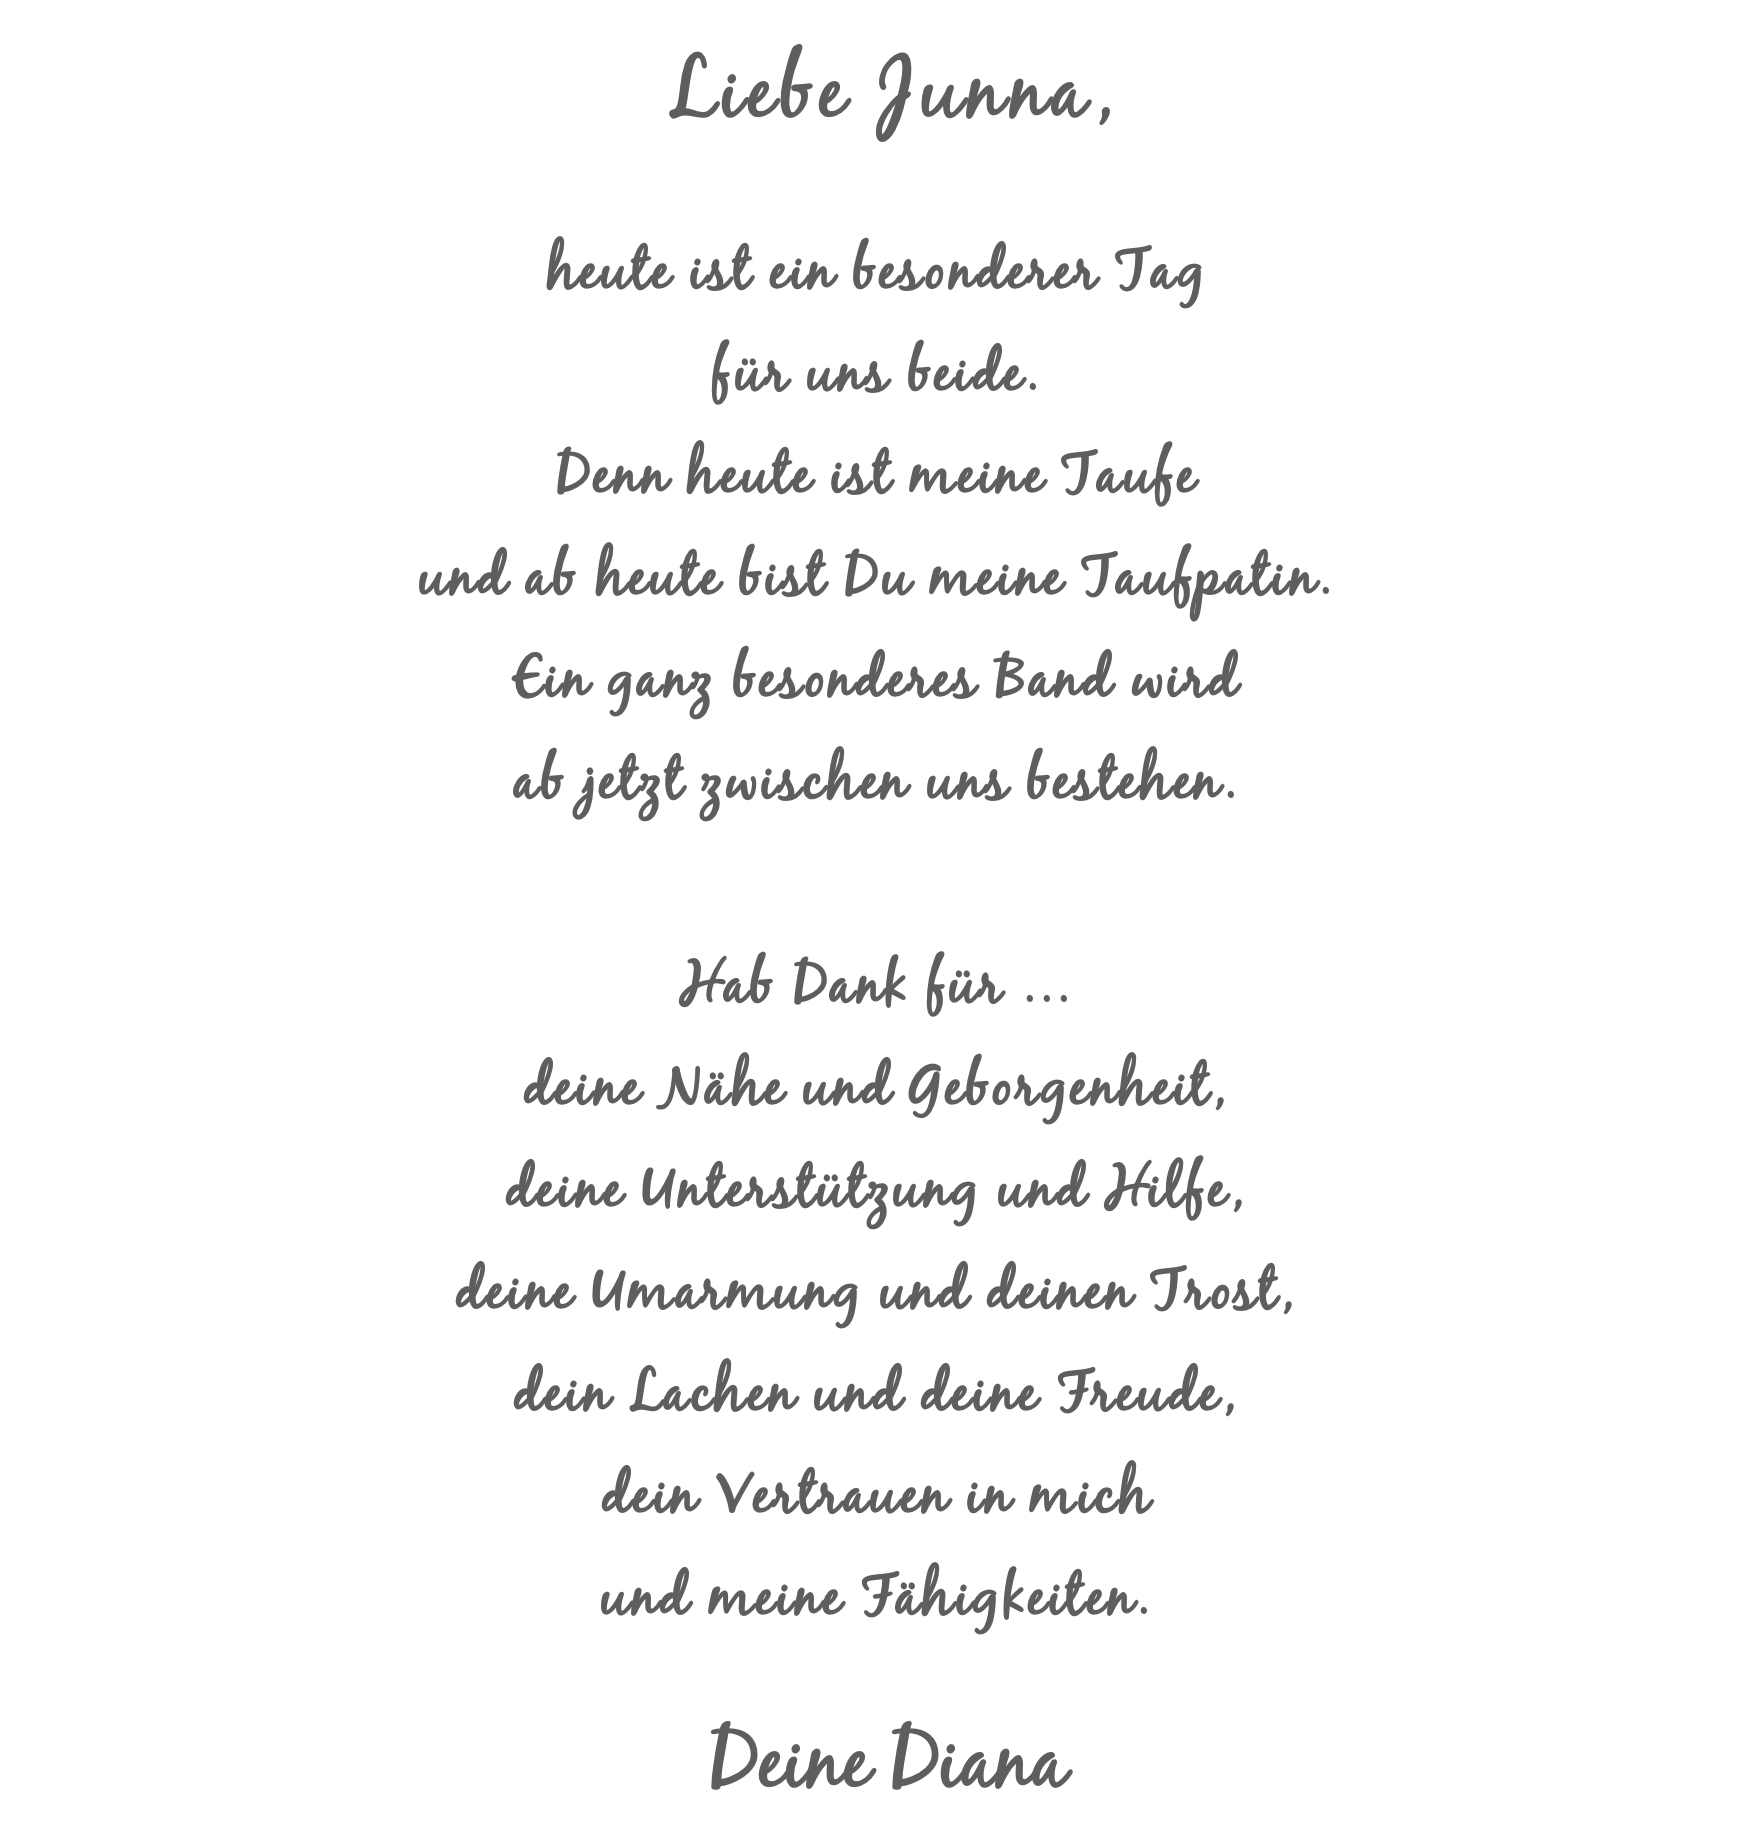 Liebe Junna,
heute ist ein besonderer Tag
für uns beide.
Denn heute ist meine Taufe
und ab heute bist Du meine Taufpatin.
Ein ganz besonderes Band wird
ab jetzt zwischen uns bestehen.
Hab Dank für ...
deine Nähe und Geborgenheit,
deine Unterstützung und Hilfe,
deine Umarmung und deinen Trost,
dein Lachen und deine Freude,
dein Vertrauen in mich
und meine Fähigkeiten.
Deine Diana